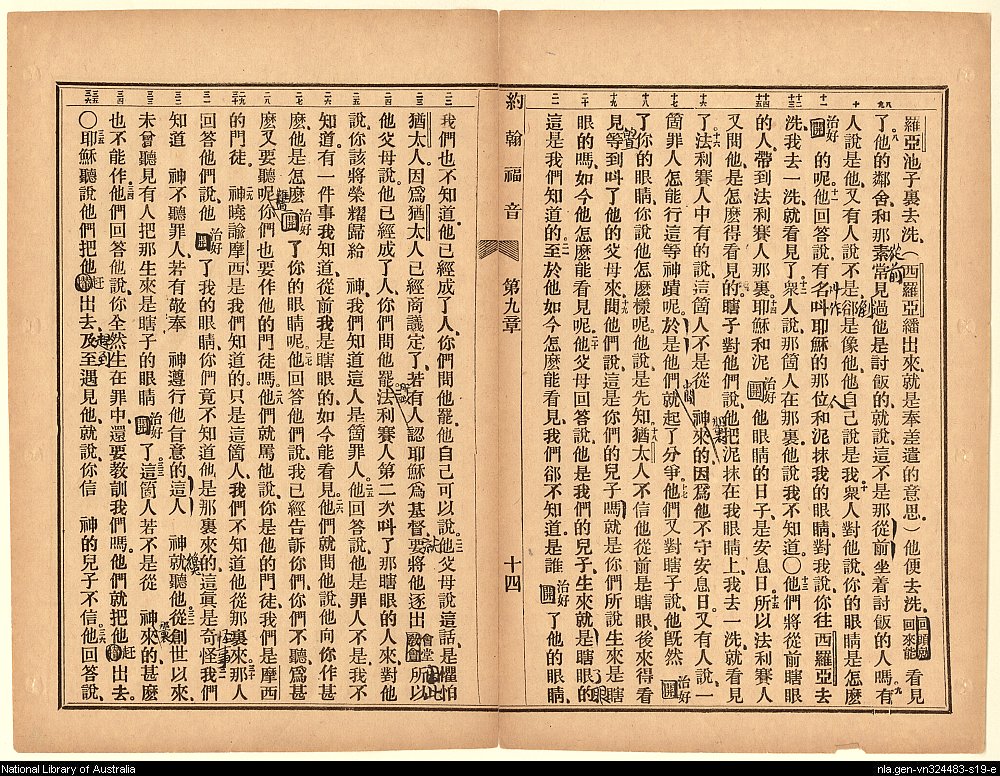 羅亞池子裏去洗、(西羅亞繙出來就是奉差遣的意思)他便去洗、回頭就看見
了。他的鄰舍和那素常見過他是討飯的、就說、這不是那從前坐着討飯的人嗎。有
人說是他、又有人說不是、卻是像他、他自己說是我。衆人對他說、你的眼睛是怎麼
治好的呢。他回答說、有名叫耶穌的那位和泥抹我的眼睛、對我說、你往西羅亞去
洗、我去一洗、就看見了。衆人說、那箇人在那裏、他說、我不知道。○他們將從前瞎眼
的人、帶到法利賽人那裏。耶穌和泥治好他眼睛的日子、是安息日。所以法利賽人
又問他、是怎麼得看見的、瞎子對他們說、他把泥抹在我眼睛上、我去一洗、就看見
了。法利賽人中有的說、這箇人不是從 神來的、因爲他不守安息日。又有人說、一
箇罪人怎能行這等神蹟呢。於是他們就起了分爭。他們又對瞎子說、他既然治好
了你的眼睛、你說他怎麼樣呢。他說、是先知。猶太人不信他從前是瞎眼、後來得看
見、等到叫了他的父母來、問他們說、這是你們的兒子嗎、就是你們所說生來是瞎
眼的嗎、如今他怎麼能看見呢。他父母回答說、他是我們的兒子、生來就是瞎眼的、
這是我們知道的。至於他如今怎麼能看見、我們卻不知道、是誰治好了他的眼睛、
約翰福音 第九章 十四
我們也不知道、他已經成了人、你們問他罷、他自己可以說。他父母說這話、是懼怕
猶太人。因爲猶太人已經商議定了、若有人認耶穌爲基督、要將他逐出會堂。所以
他父母說、他已經成了人、你們問他罷。法利賽人第二次叫了那瞎眼的人來、對他
說、你該將榮耀歸給 神、我們知道這人是箇罪人。他回答說、他是罪人不是、我不
知道、有一件事我知道、從前我是瞎眼的、如今能看見。他們就問他說、他向你作甚
麼、他是怎麼治好了你的眼睛呢。他回答他們說、我已經告訴你們、你們不聽、爲甚
麼又要聽呢、你們也要作他的門徒嗎。他們就罵他說、你是他的門徒、我們是摩西
的門徒。 神曉諭摩西、是我們知道的、只是這箇人、我們不知道他從那裏來。那人
回答他們說、他治好了我的眼睛、你們竟不知道他是那裏來的、這眞是奇怪。我們
知道 神不聽罪人、若有敬奉 神遵行他旨意的、這人 神就聽他。從創世以來、
未曾聽見有人把那生來是瞎子的眼睛治好了。這箇人若不是從 神來的、甚麼
也不能作。他們回答他說、你全然生在罪中、還要教訓我們嗎。他們就把他趕出去。
○耶穌聽說他們把他趕出去、及至遇見他、就說、你信 神的兒子不信。他回答說、
National Library of Australia
nla.gen-vn324483-s19-e